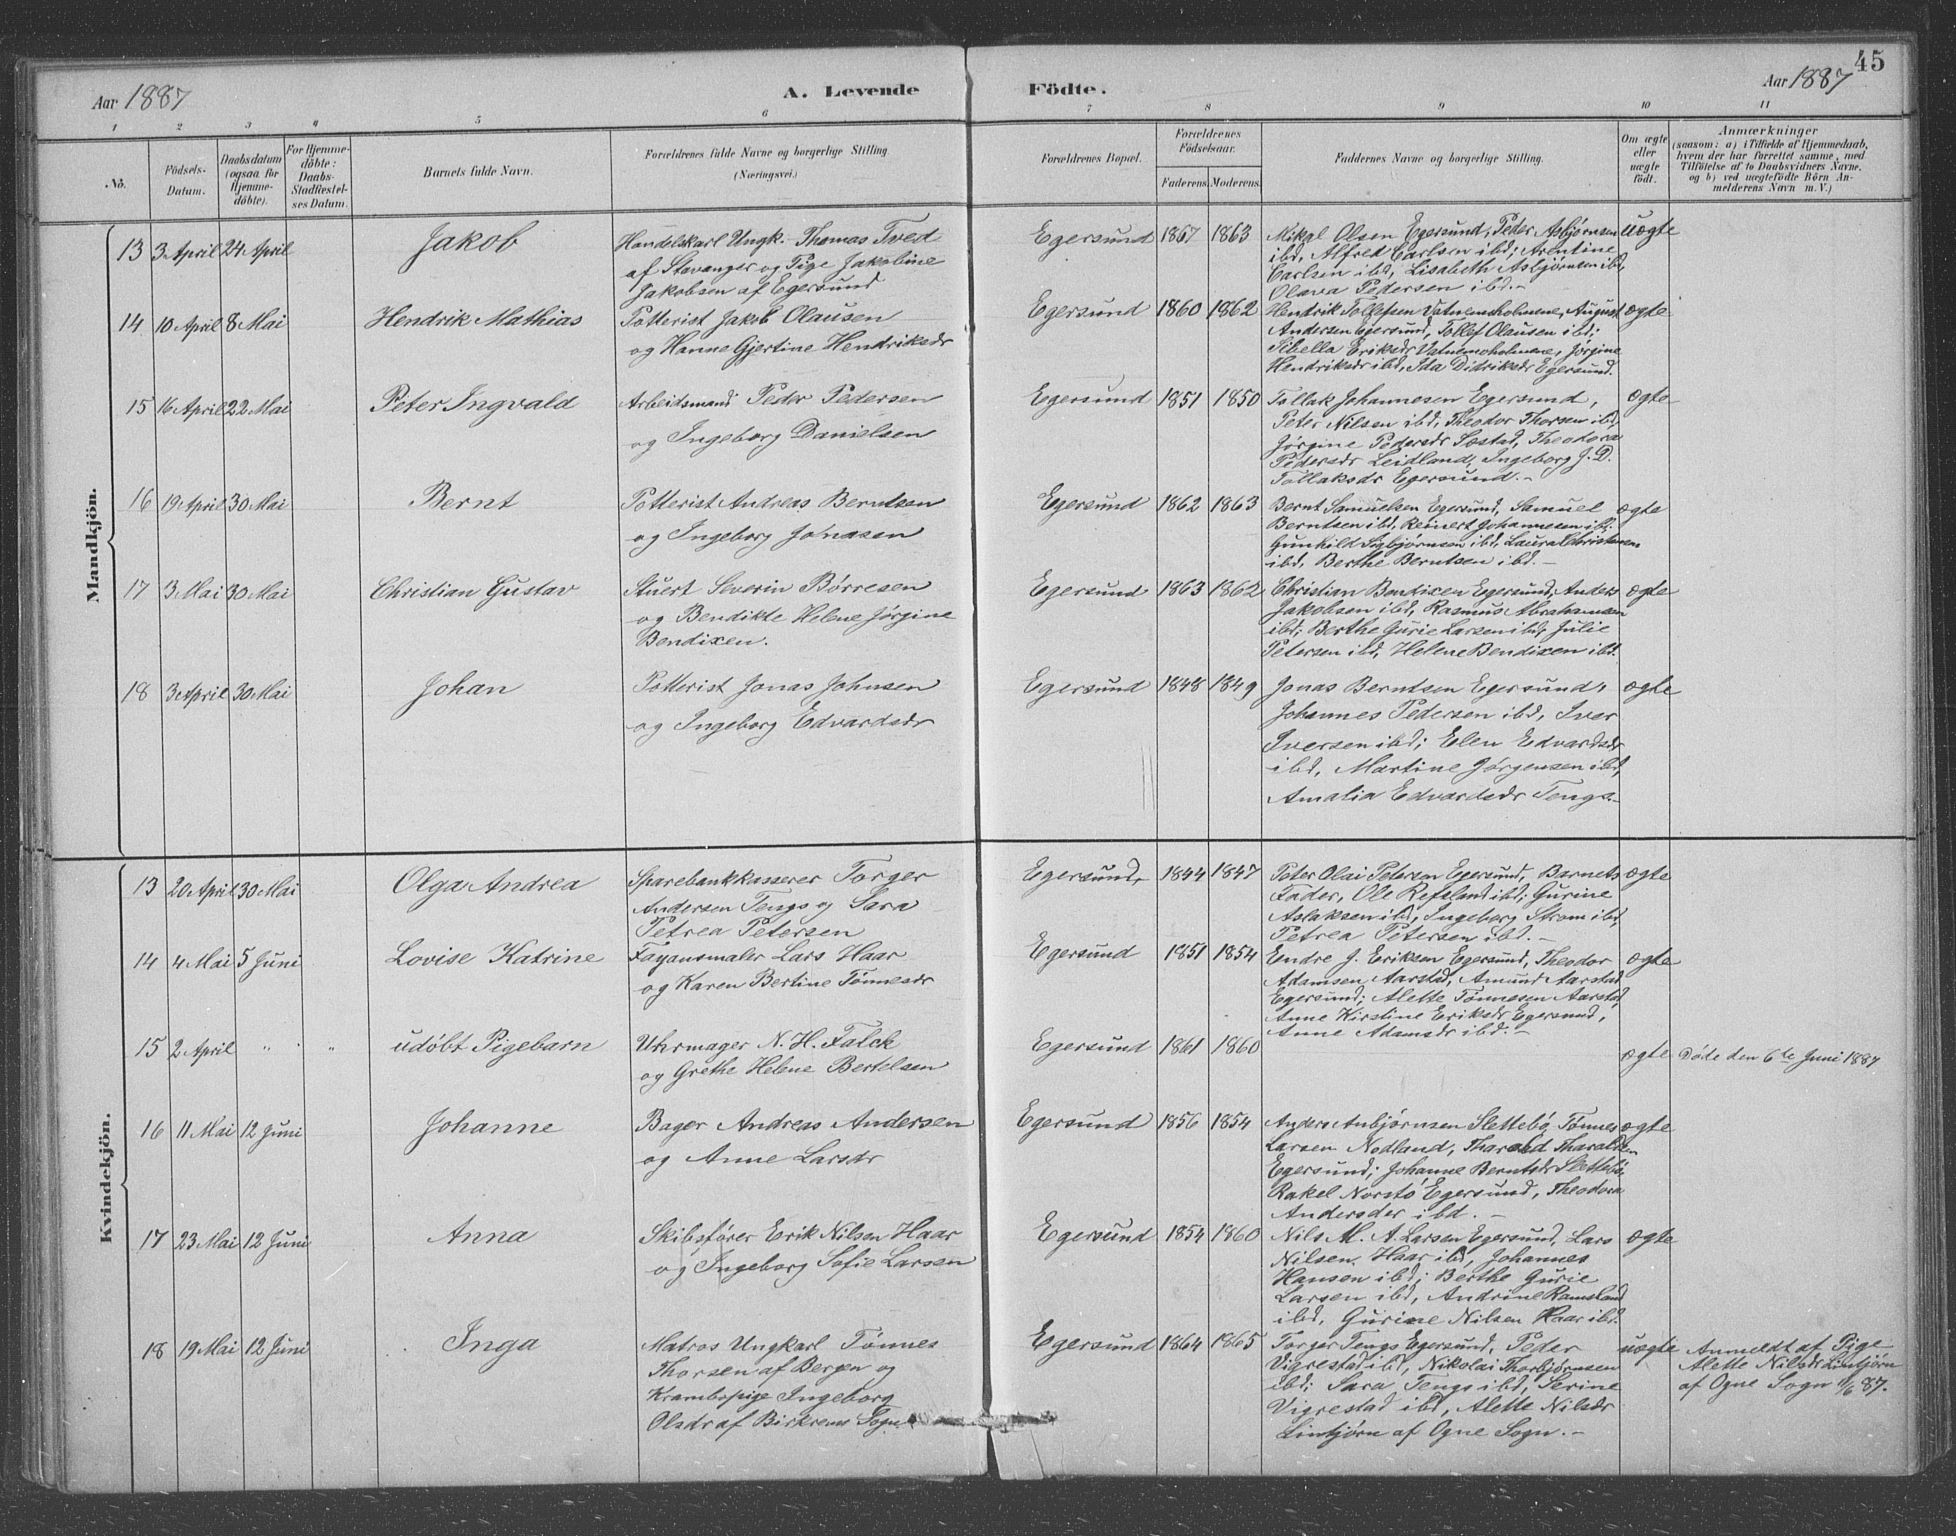 45
Aar 1887
A. Levende
Födte.
Aar 1887
1 2 3 4 5 6 7 8 9 10 11
No.
Födsels-
Datum.
Daabsdatum
(ogsaa for
Hjemme-
döbte).
For Hjemme-
döbte:
Daabs-
Stadfæstel-
ses Datum.
Barnets fulde Navn.
Forældrenes fulde Navne og borgerlige Stilling.
(Næringsvei.)
Forældrenes Bopæl.
Forældrenes
Födselsaar.
Faderens. Moderens.
Faddernes Navne og borgerlige Stilling.
Om ægte
eller
uægte
födt.
Anmærkninger
(saasom: a) i Tilfælde af Hjemmedaab,
hvem der har forrettet samme, med
Tilföielse af to Daabsvidners Navne,
og b) ved uægtefödte Börn An-
melderens Navn m. V.)
Mandkjön.
13 3 April 24 April Jakob
Handelskarl Ungk. Thomas Tved
af Stavanger og Pige Jakobine
Jakobsen af Egersund
Egersund 1867 1863
Mikal Olsen Egersund, Peder Asbjørnsen
ibd, Alfred Carlsen ibd; Arentine
Carlsen ibd, Lisabeth Asbjørnsen ibd,
Olava Pedersen ibd.-
uægte
14 10 April 8 Mai Hendrik Mathias
Potterist Jakob Olausen
og Hanne Gjertine Hendriksdr
Egersund 1860 1862
Hendrik Tollefsen Vatnemsholmene, August
Andersen Egersund, Tollef Olausen ibd;
Sibella Eriksdr Vatnemoholmene, Jørgine
Hendriksdr ibd, Ida Didriksdr Egersund.
ægte
15 16 April 22 Mai Peter Ingvald
Arbeidsmand Peder Pedersen
og Ingeborg Danielsen
Egersund 1851 1850
Tollak Johannesen Egersund,
Peter Nilsen ibd, Theodor Thorsen ibd,
Jørgine Pedersdr Sæstad, Theodora
Pedersdr Leidland, Ingeborg J. D.
Tollaksdr Egersund.-
ægte
16 19 April 30 Mai Bernt
Potterist Andreas Berntsen
og Ingeborg Jonasen
Egersund 1862 1863
Bernt Samuelsen Egersund, Samuel
Berntsen ibd, Reinert Johannesen ibd;
Gunhild Sigbjørnsen ibd, Laura Christensen
ibd, Berthe Berntsen ibd.-
ægte
17 3 Mai 30 Mai Christian Gustav
Stuert Severin Børresen
og Bendikte Helene Jørgine
Bendixen.
Egersund 1863 1862
Christian Bendixen Egersund, Anders
Jakobsen ibd, Rasmus Abrahamsen
ibd; Berthe Gurie Larsen ibd, Julie
Petersen ibd, Helene Bendixen ibd.
ægte
18 3 April 30 Mai Johan
Potterist Jonas Johnsen
og Ingeborg Edvardsdr
Egersund 1848 1849
Jonas Berntsen Egersund,
Johannes Pedersen ibd, Iver
Iversen ibd; Elen Edvardsdr
ibd, Martine Jørgensen ibd,
Amalia Edvardsdr Tengs.-
ægte
Kvindekjön.
13 20 April 30 Mai Olga Andrea
Sparebankkasserer Torger
Andersen Tengs og Sara
Petrea Petersen
Egersund, 1844 1847
Peter Olai Petersen Egersund, Barnets
Fader, Ole Refsland ibd; Gurine
Aslaksen ibd, Ingeborg Strøm ibd,
Petrea Petersen ibd.-
ægte
14 4 Mai 5 Juni Lovise Katrine
Fayansmaler Lars Haar
og Karen Bertine Tønnesdr
Egersund 1851 1854
Endre J. Eriksen Egersund, Theodor
Adamsen Aarstad, Amund Aarstad
Egersund; Alette Tønnesen Aarstad,
Anne Kirstine Eriksdr Egersund,
Anne Adamsdr ibd.-
ægte
15 2 April " " " udøbt Pigebarn
Uhrmager N. H. Falck
og Grethe Helene Bertelsen
Egersund 1861 1860
ægte
Døde den 6te Juni 1887
16 11 Mai 12 Juni Johanne
Bager Andreas Andersen
og Anne Larsdr
Egersund 1856 1854
Anders Anbjørnsen Slettebø, Tønnes
Larsen Nodland, Tharald Tharaldsen
Egersund; Johanne Berntsdr Slettebø,
Rakel Norstø Egersund, Theodora
Andersdr ibd.-
ægte
17 23 Mai 12 Juni Anna
Skibsfører Erik Nilsen Haar
og Ingeborg Sofie Larsen
Egersund 1854 1860
Nils M. A. Larsen Egersund, Lars
Nilsen Haar ibd, Johannes
Hansen ibd; Berthe Gurie
Larsen ibd, Andrine Ramsland
ibd, Gurine Nilsen Haar ibd.
ægte
18 19 Mai 12 Juni Inga
Matros Ungkarl Tønnes
Thorsen af Bergen og
Krambopige Ingeborg
Olsdr af Birkrem Sogn
Egersund 1864 1865
Torger Tengs Egersund, Peder
Vigrestad ibd, Nikolai Thorbjørnsen
ibd; Sara Tengs ibd, Serine
Vigrestad ibd, Alette Nilsdr
Lintjørn af Ogne Sogn.-
uægte
Anmeldt af Pige
Alette Nilsdr Lintjørn
af Ogne Sogn 11/6 87.